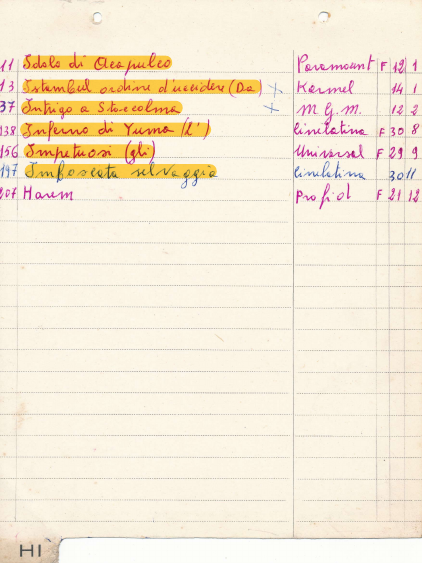 11 Idolo di Acapulco Paramount F 12 1
13 Istambul ordine d'uccidere (Da) x Karmel 14 1
37 Intrigo a Stoccolma x M.G.M. 12 2
138 Inferno di Yuma (l') Cinelatina F 30 8
156 Impetuosi (gli) Universal F 29 9
197 Imboscata selvaggia Cinelatina 30 11
207 Harem Profilol F 21 12
HI